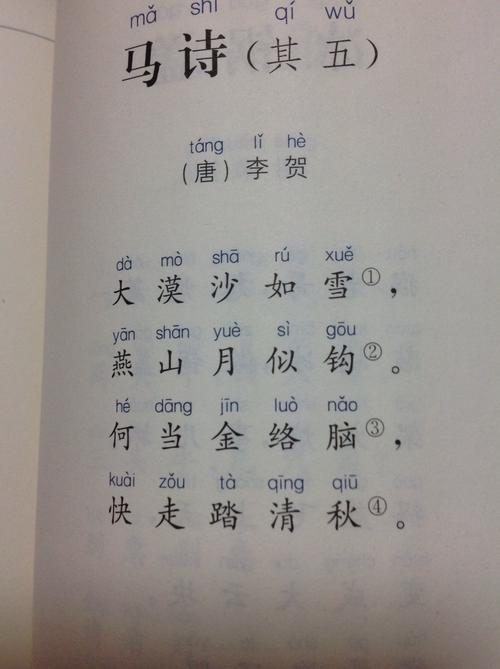 mǎ shī qí wǔ
马诗(其五)
táng lǐ hè
(唐)李贺
dà mò shā rú xuě
大漠沙如雪①,
yān shān yuè sì gōu
燕山月似钩②。
hé dāng jīn luò nǎo
何当金络脑③,
kuài zǒu tà qīng qiū
快走踏清秋④。